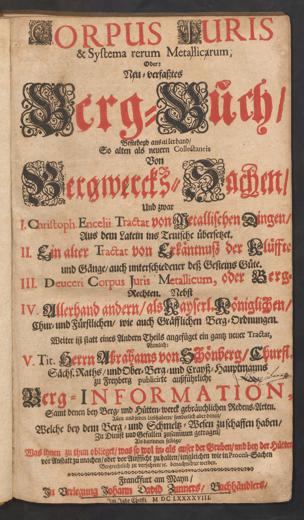 CORPUS JURIS
& Systema rerum Metallicarum,
Oder:
Neu-verfaßtes
Berg-Buch/
Bestehend aus allerhand/
So alten als neuern Collectaneis
Von
Bergwercks-Sachen/
Und zwar
I. Christoph Encelii Tractat von Metallischen Dingen/
Aus dem Latein ins Teutsche übersetzet.
II. Ein alter Tractat von Erkäntnuß der Klüffte
und Gänge/ auch unterschiedener deß Gesteins Güte.
III. Deuceri Corpus Juris Metallicum, oder Berg-
Rechten. Nebst
IV. Allerhand andern/ als Kayserl. Königlichen/
Chur- und Fürstlichen/ wie auch Gräfflichen Berg-Ordnungen.
Weiter ist statt eines Andern Theils angefüget ein gantz neuer Tractat,
Nemlich:
V. Tit. Herrn Abrahams von Schönberg/ Churfl.
Sächs. Raths/ und Ober-Berg- und Crayß-Hauptmanns
zu Freyberg publicirte ausführliche
Berg-INFORMATION,
Samt denen bey Berg- und Hütten-werck gebräuchlichen Redens-Arten.
Allen und jeden
Welche bey dem Berg- und Schmeltz-Wesen zu schaffen haben/
Zu Dienst und Gefallen zusammen getragen/
Was ihnen zu thun oblieget/ was so wol in- als auser der Gruben/ und bey der Hütten
vor Anstalt zu machen/ oder vor Auffsicht zu halten/ ingleichen wie in Process-Sachen
Franckfurt am Mayn/
In Verlegung Johann David Zunners/ Buchhändlers/
Im Jahr Christi M DC LXXXXVIII.